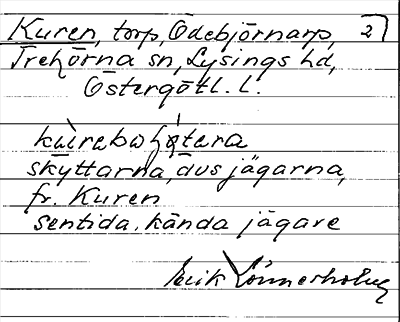 Kuren, torp, Ödebjörnarp, 2)
Trehörna sn, Lysings hd,
Östergötl. l.
skyttarna, dvs jägarna,
fr. Kuren
sentida, kända jägare
Erik Lönnerholm